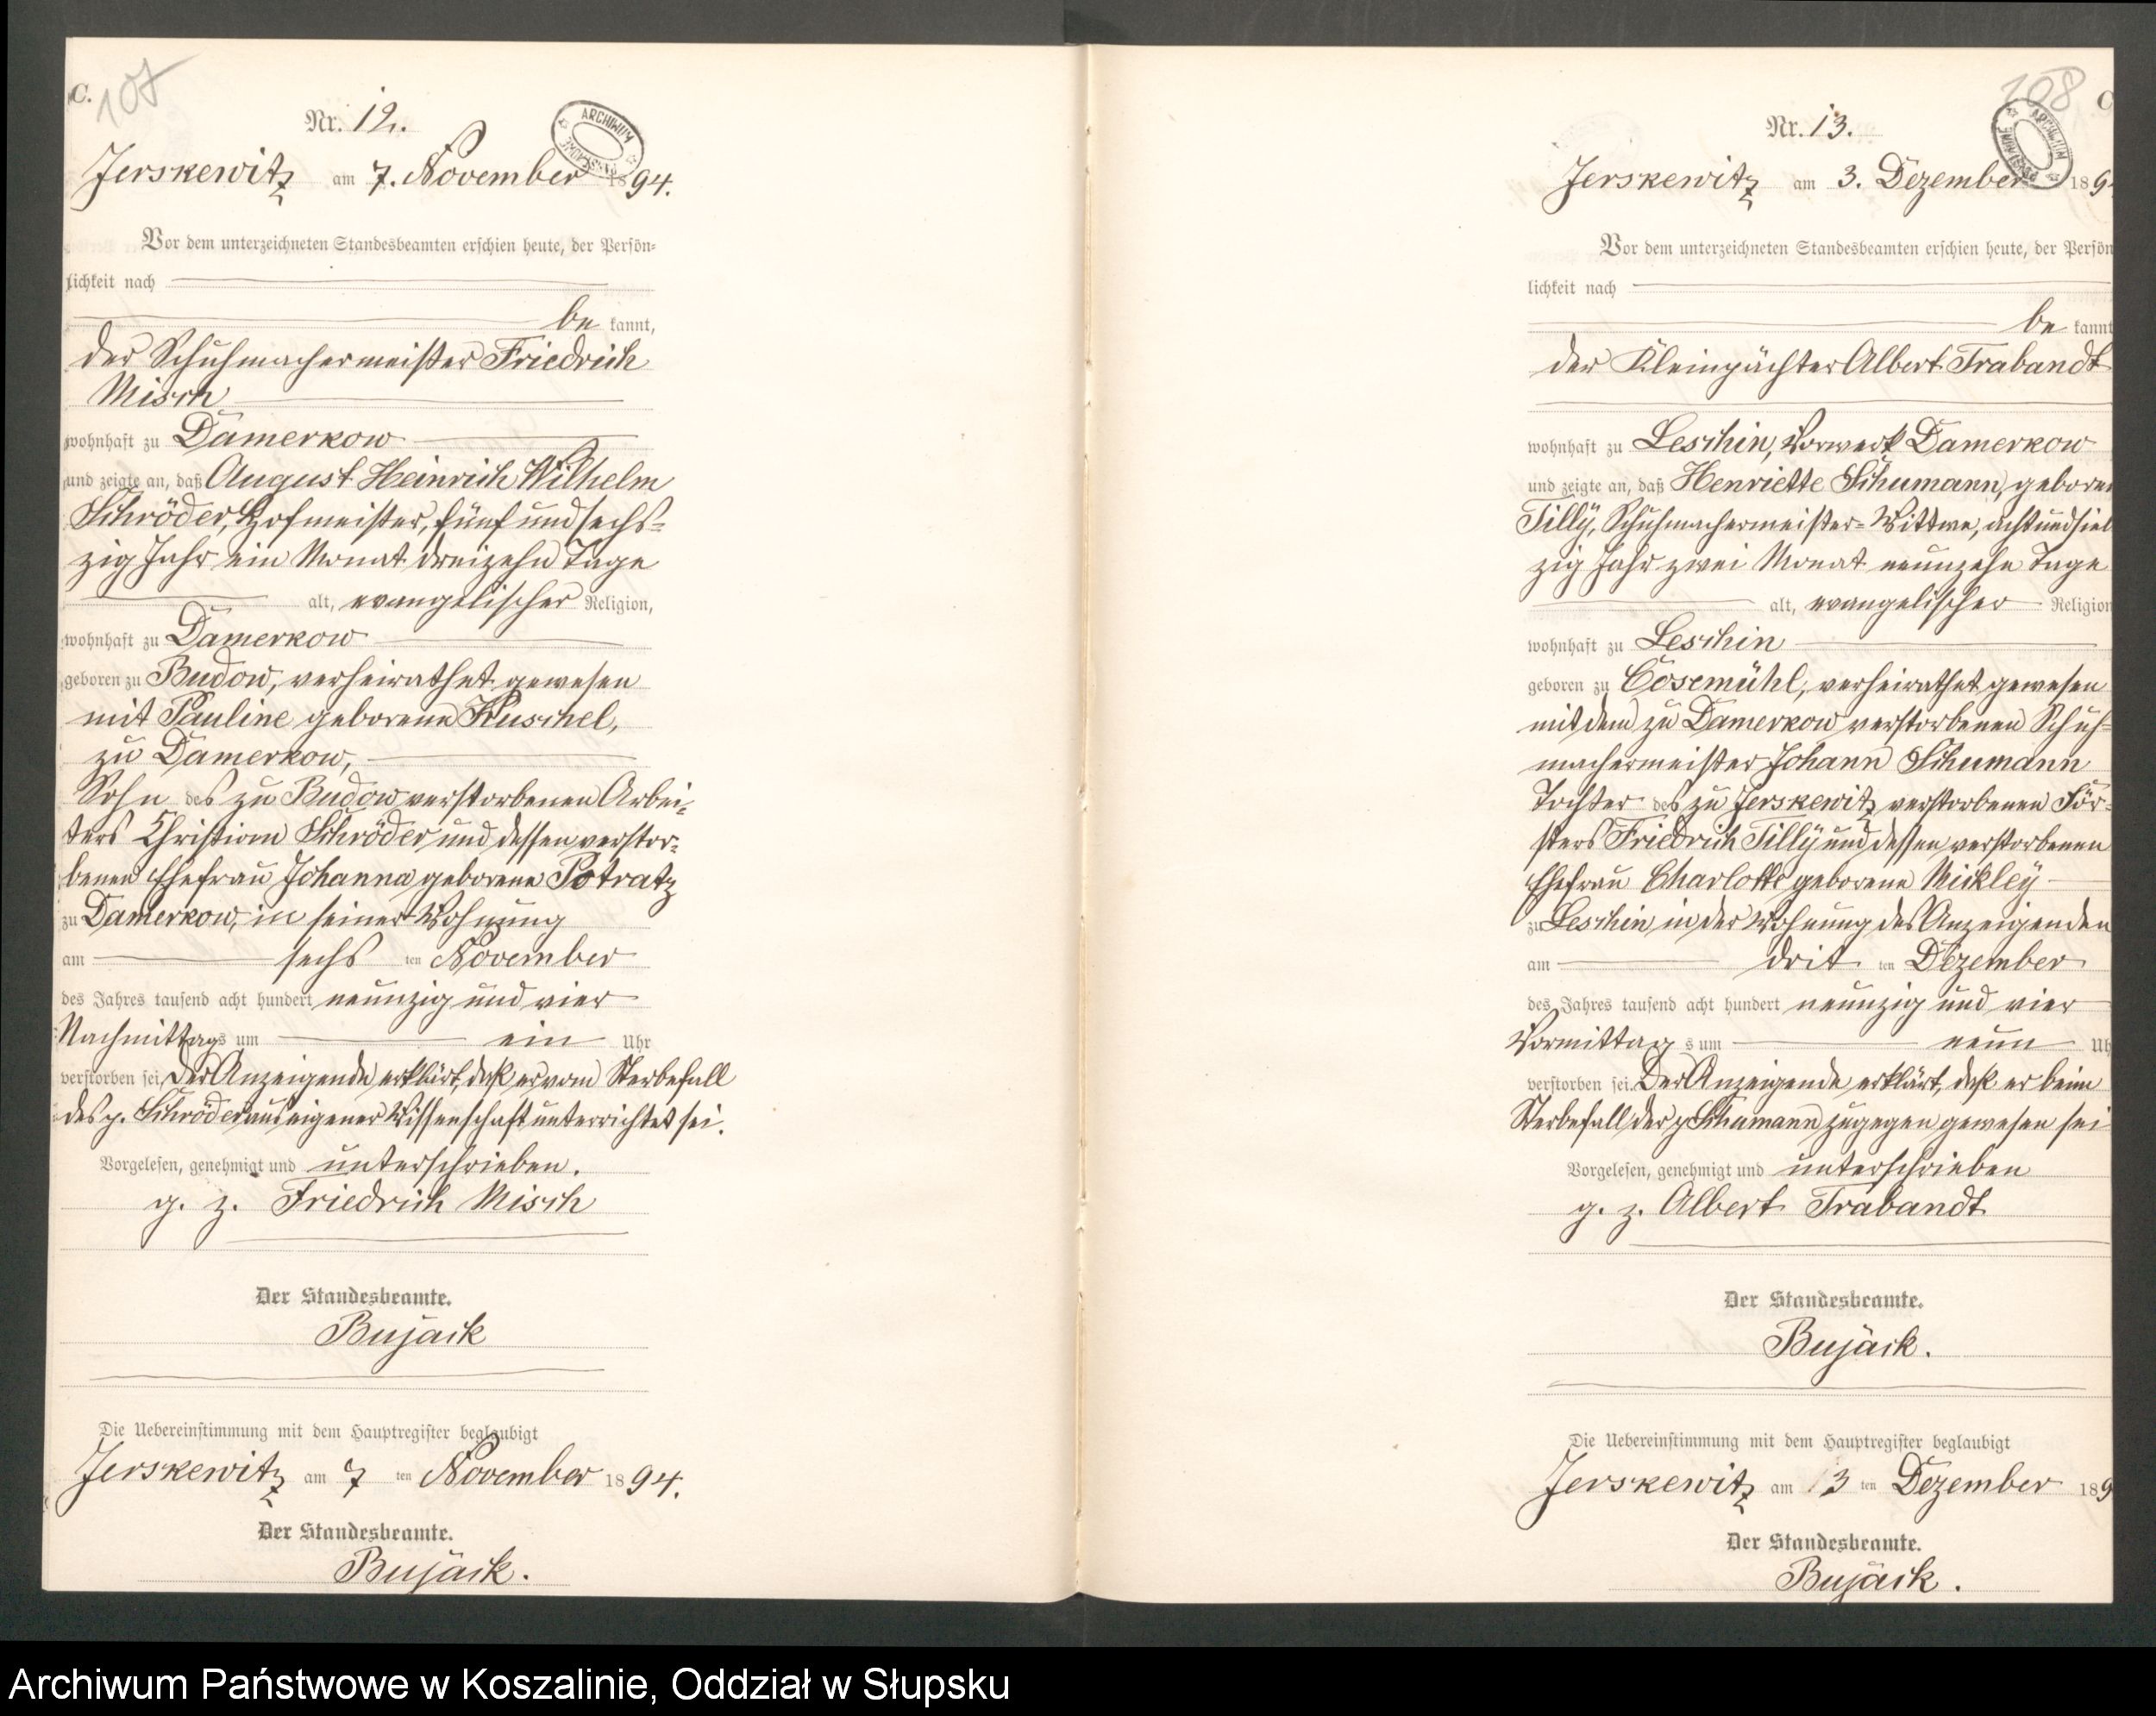 C. 107
Nr. 12.
ARCHIWUM
Jerskewitz am 7. November 1894.
Vor dem unterzeichneten Standesbeamten erschien heute, der Persön-
lichkeit nach
be kannt,
der Schuhmachermeister Friedrich
Misch
wohnhaft zu Damerkow
und zeigte an, daß August Heinrich Wilhelm
Schröder, Hofmeister, fünf und sechs-
zig Jahr ein Monat dreizehn Tage
alt, evangelischer Religion,
wohnhaft zu Damerkow
geboren zu Budow, verheirathet gewesen
mit Pauline geborene Kuschel,
zu Damerkow,
Sohn des zu Budow verstorbenen Arbei-
ters Christian Schröder und dessen verstor-
benen Ehefrau Johanna geborene Potratz
zu Damerkow, in seiner Wohnung
am sechs ten November
des Jahres tausend acht hundert neunzig und vier
Nachmittags um ein Uhr
verstorben sei, der Anzeigende erklärt, daß er vom Sterbefall
des p. Schröder aus eigener Wissenschaft unterrichtet sei.
Vorgelesen, genehmigt und unterschrieben.
g. z. Friedrich Misch
Der Standesbeamte.
Bujack
Die Uebereinstimmung mit dem Hauptregister beglaubigt
Jerskewitz am 7 ten November 1894.
Der Standesbeamte.
Bujack.
108 C
Nr. 13.
ARCHIWUM
Jerskewitz am 3. Dezember 189
Vor dem unterzeichneten Standesbeamten erschien heute, der Persön
lichkeit nach
be kannt
der Kleinpächter Albert Trabandt
wohnhaft zu Leschin, Vorwerk Damerkow
und zeigte an, daß Henriette Schumann, geboren
Tilly, Schuhmachermeister-Wittwe, acht und sieb
zig Jahr zwei Monat neunzehn Tage
alt, evangelischer Religion
wohnhaft zu Leschin
geboren zu Cosemühl, verheirathet gewesen
mit dem zu Damerkow verstorbenen Schuh-
machermeister Johann Schumann
Tochter des zu Jerskewitz verstorbenen För-
sters Friedrich Tilly und dessen verstorbenen
Ehefrau Charlotte geborene Mickley
zu Leschin in der Wohnung des Anzeigenden
am drit ten Dezember
des Jahres tausend acht hundert neunzig und vier
Vormittag s um neun Uh
verstorben sei. Der Anzeigende erklärt, daß er beim
Sterbefall der p Schumann zugegen gewesen sei
Vorgelesen, genehmigt und unterschrieben
g. z. Albert Trabandt
Der Standesbeamte.
Bujack.
Die Uebereinstimmung mit dem Hauptregister beglaubigt
Jerskewitz am 3 ten Dezember 189
Der Standesbeamte.
Bujack.
Archiwum Państwowe w Koszalinie, Oddział w Słupsku